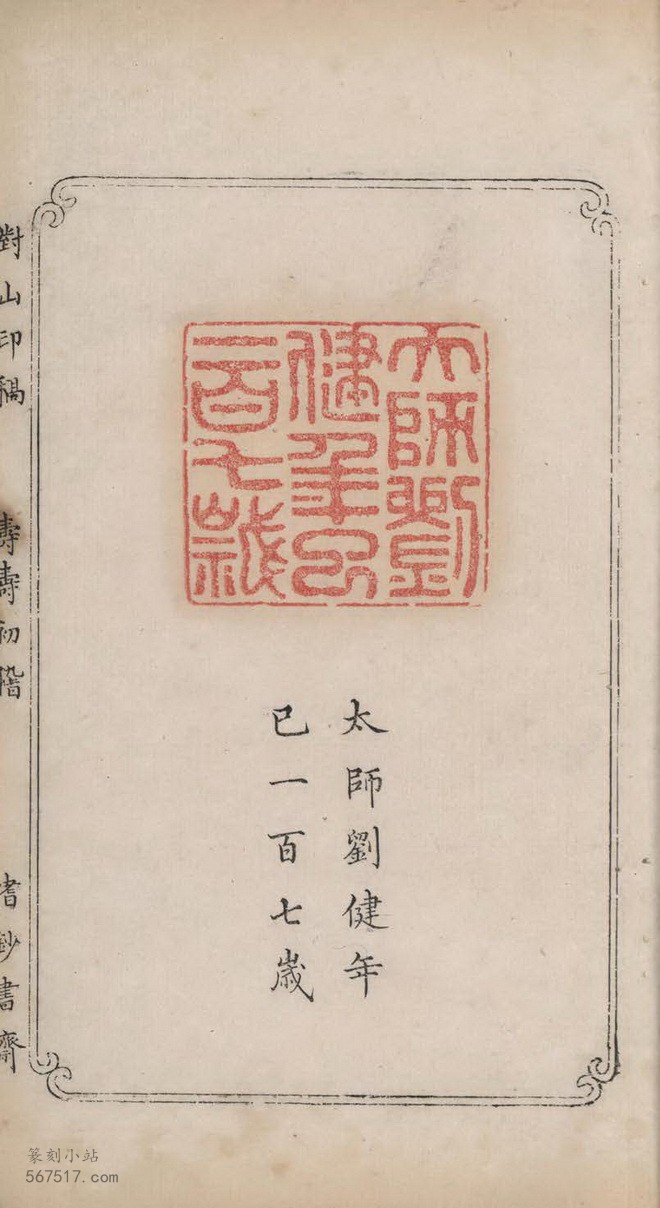 太師劉
健年已
一百七歲
太師劉健年
已一百七歲
對山印稿 壽壽初階 耆鈔書齋
篆刻小站
567517.com